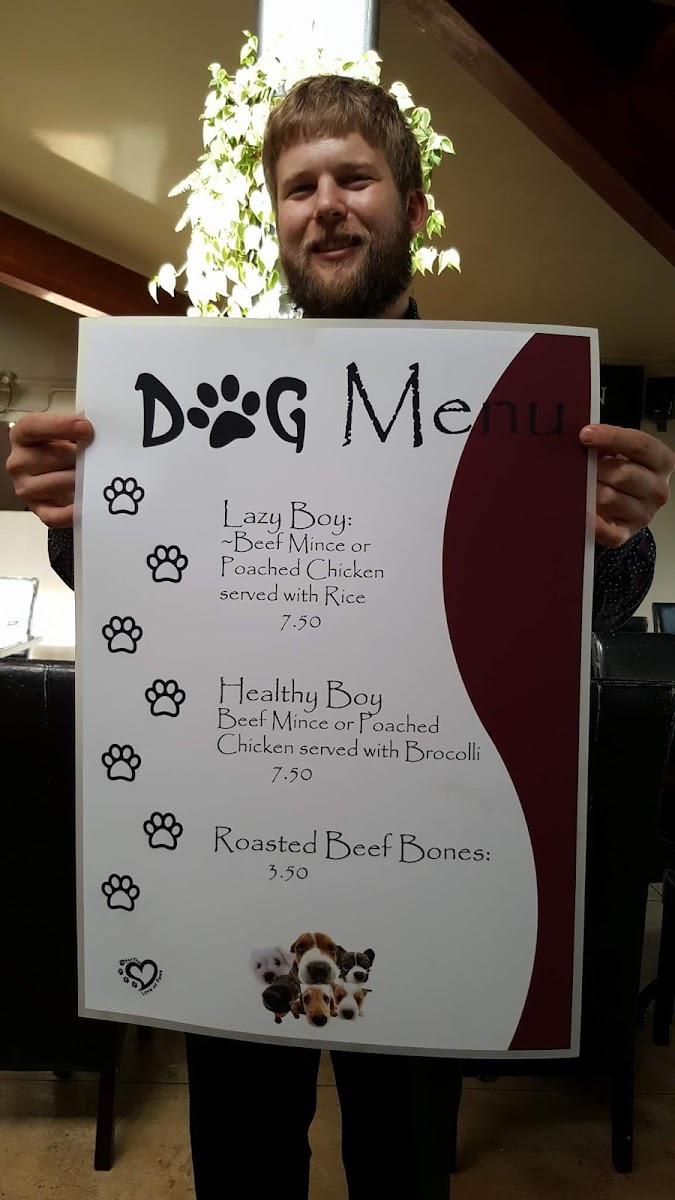 DOG Menu
Lazy Boy:
~Beef Mince or
Poached Chicken
served with Rice
7.50
Healthy Boy
Beef Mince or Poached
Chicken served with Brocolli
7.50
Roasted Beef Bones:
3.50
For The
Love of Paws